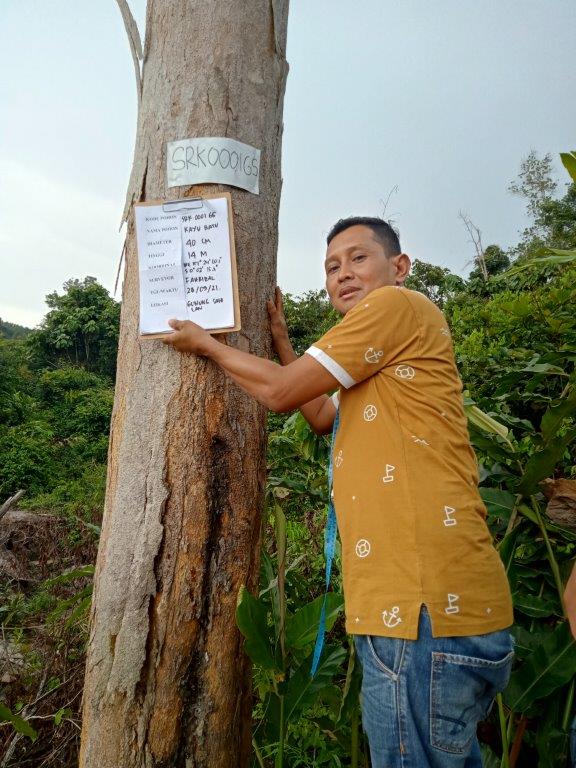 SRK000165
KODE POHON SRK 000165
NAMA POHON KAYU BATU
DIAMETER 40 CM
TINGGI 14 M
SURVEYOR
TGL/WAKTU 20/09/21.
LOKASI GUNUNG